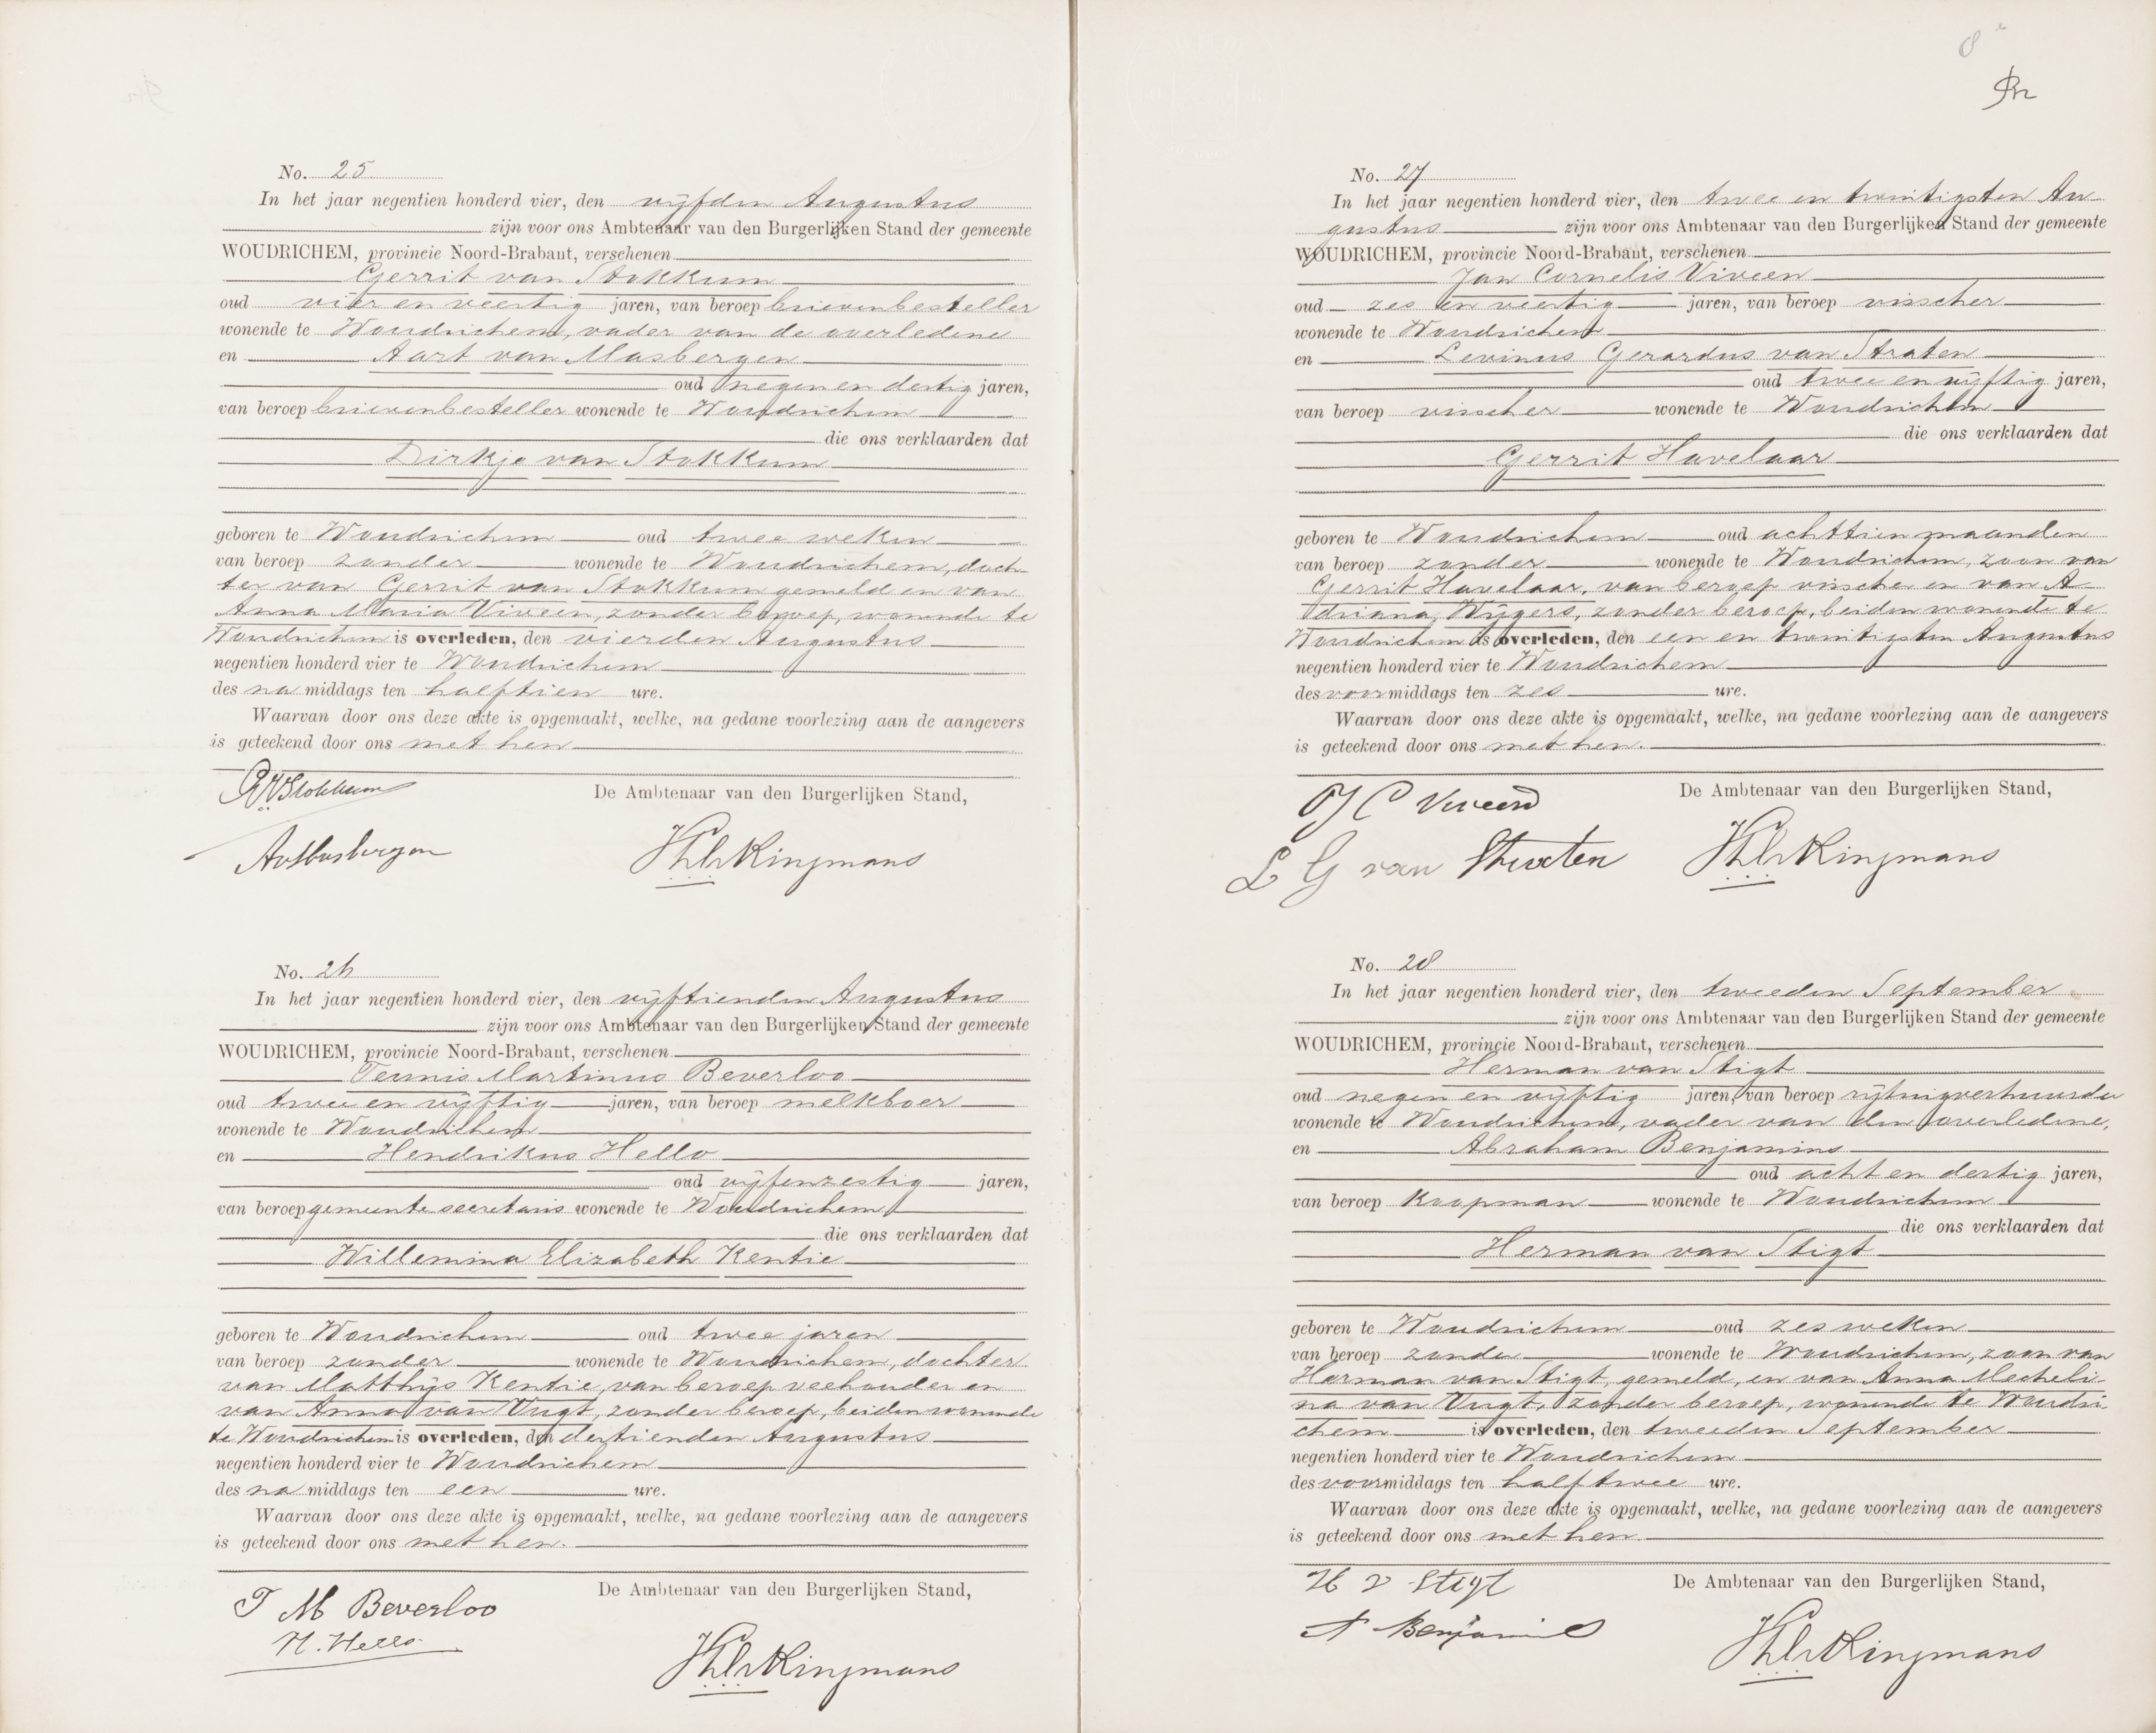 No. 25
In het jaar negentien honderd vier, den vijfden Augustus
zijn voor ons Ambtenaar van den Burgerlijken Stand der gemeente
WOUDRICHEM, provincie Noord-Brabant, verschenen
Gerrit van Stokkum
oud vier en veertig jaren, van beroep brievenbesteller
wonende te Woudrichem, vader van de overledene
en Aart van Masbergen
oud negen en dertig jaren,
van beroep brievenbesteller wonende te Woudrichem
die ons verklaarden dat
Dirkje van Stokkum
geboren te Woudrichem oud twee weken
van beroep zonder wonende te Woudrichem, doch-
ter van Gerrit van Stokkum gemeld en van
Anna Maria Viveen, zonder beroep, wonende te
Woudrichem is overleden, den vierden Augustus
negentien honderd vier te Woudrichem
des na middags ten half tien ure.
Waarvan door ons deze akte is opgemaakt, welke, na gedane voorlezing aan de aangevers
is geteekend door ons met hen
De Ambtenaar van den Burgerlijken Stand,
No. 26
In het jaar negentien honderd vier, den vijftienden Augustus
zijn voor ons Ambtenaar van den Burgerlijken Stand der gemeente
WOUDRICHEM, provincie Noord-Brabant, verschenen
Teunis Martinus Beverloo
oud twee en vijftig jaren, van beroep melkboer
wonende te Woudrichem
en Hendrikus Hello
oud vijfenzestig jaren,
van beroep gemeente secretaris wonende te Woudrichem
die ons verklaarden dat
Willemina Elizabeth Kentie
geboren te Woudrichem oud twee jaren
van beroep zonder wonende te Woudrichem, dochter
van Matthijs Kentie, van beroep veehouder en
van Anna van Vugt, zonder beroep, beiden wonende
te Woudrichem is overleden, den dertienden Augustus
negentien honderd vier te Woudrichem
des na middags ten een ure.
Waarvan door ons deze akte is opgemaakt, welke, na gedane voorlezing aan de aangevers
is geteekend door ons met hen.
De Ambtenaar van den Burgerlijken Stand,
T M Beverloo
H. Hello
No. 27
In het jaar negentien honderd vier, den twee en twintigsten Au
gustus zijn voor ons Ambtenaar van den Burgerlijken Stand der gemeente
WOUDRICHEM, provincie Noord-Brabant, verschenen
Jan Cornelis Viveen
oud zes en veertig jaren, van beroep visscher
wonende te Woudrichem
en Levinus Gerardus van Straten
oud twee en vijftig jaren,
van beroep visscher wonende te Woudrichem
die ons verklaarden dat
Gerrit Havelaar
geboren te Woudrichem oud achttien maanden
van beroep zonder wonende te Woudrichem, zoon van
Gerrit Havelaar, van beroep visscher en van A
driana Wijgers, zonder beroep, beiden wonende te
Woudrichem is overleden, den een en twintigsten Augustus
negentien honderd vier te Woudrichem
des voormiddags ten zes ure.
Waarvan door ons deze akte is opgemaakt, welke, na gedane voorlezing aan de aangevers
is geteekend door ons met hen.
De Ambtenaar van den Burgerlijken Stand,
J C Viveen
L G van Straten
No. 28
In het jaar negentien honderd vier, den tweeden September
zijn voor ons Ambtenaar van den Burgerlijken Stand der gemeente
WOUDRICHEM, provincie Noord-Brabant, verschenen
Herman van Stigt
oud negen en vijftig jaren, van beroep rijtuigverhuurder
wonende te Woudrichem, vader van den overledene,
en Abraham Benjamins
oud acht en dertig jaren,
van beroep koopman wonende te Woudrichem
die ons verklaarden dat
Herman van Stigt
geboren te Woudrichem oud zes weken
van beroep zonder wonende te Woudrichem, zoon van
Herman van Stigt, gemeld, en van Anna Mecheli-
na van Vugt, zonder beroep, wonende te Woudri-
chem is overleden, den tweeden September
negentien honderd vier te Woudrichem
des voormiddags ten half twee ure.
Waarvan door ons deze akte is opgemaakt, welke, na gedane voorlezing aan de aangevers
is geteekend door ons met hen
De Ambtenaar van den Burgerlijken Stand,
H v Stigt
A Benjamins